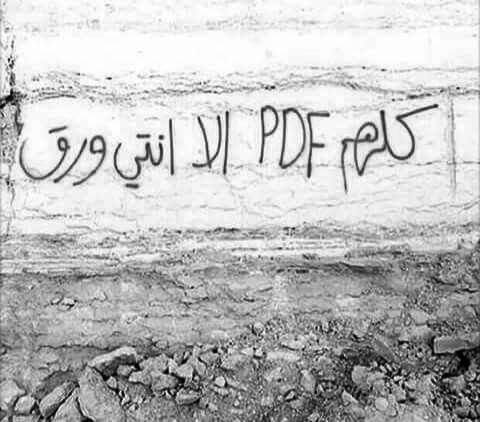 كلهم PDF الا انتي ورق